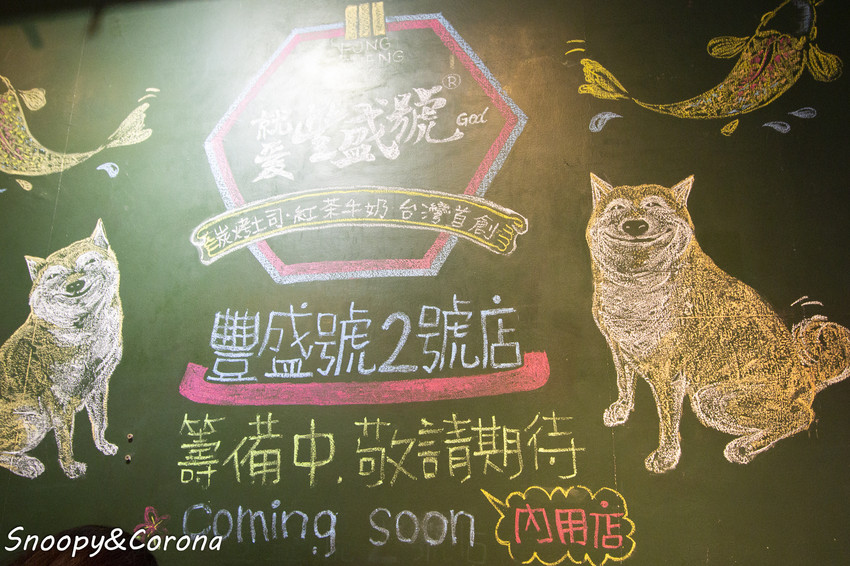 FONG SHENG
就愛豐盛號® God
炭烤土司·紅茶牛奶 台灣首創
豐盛號2號店
籌備中.敬請期待
Coming soon 內用店
Snoopy&Corona